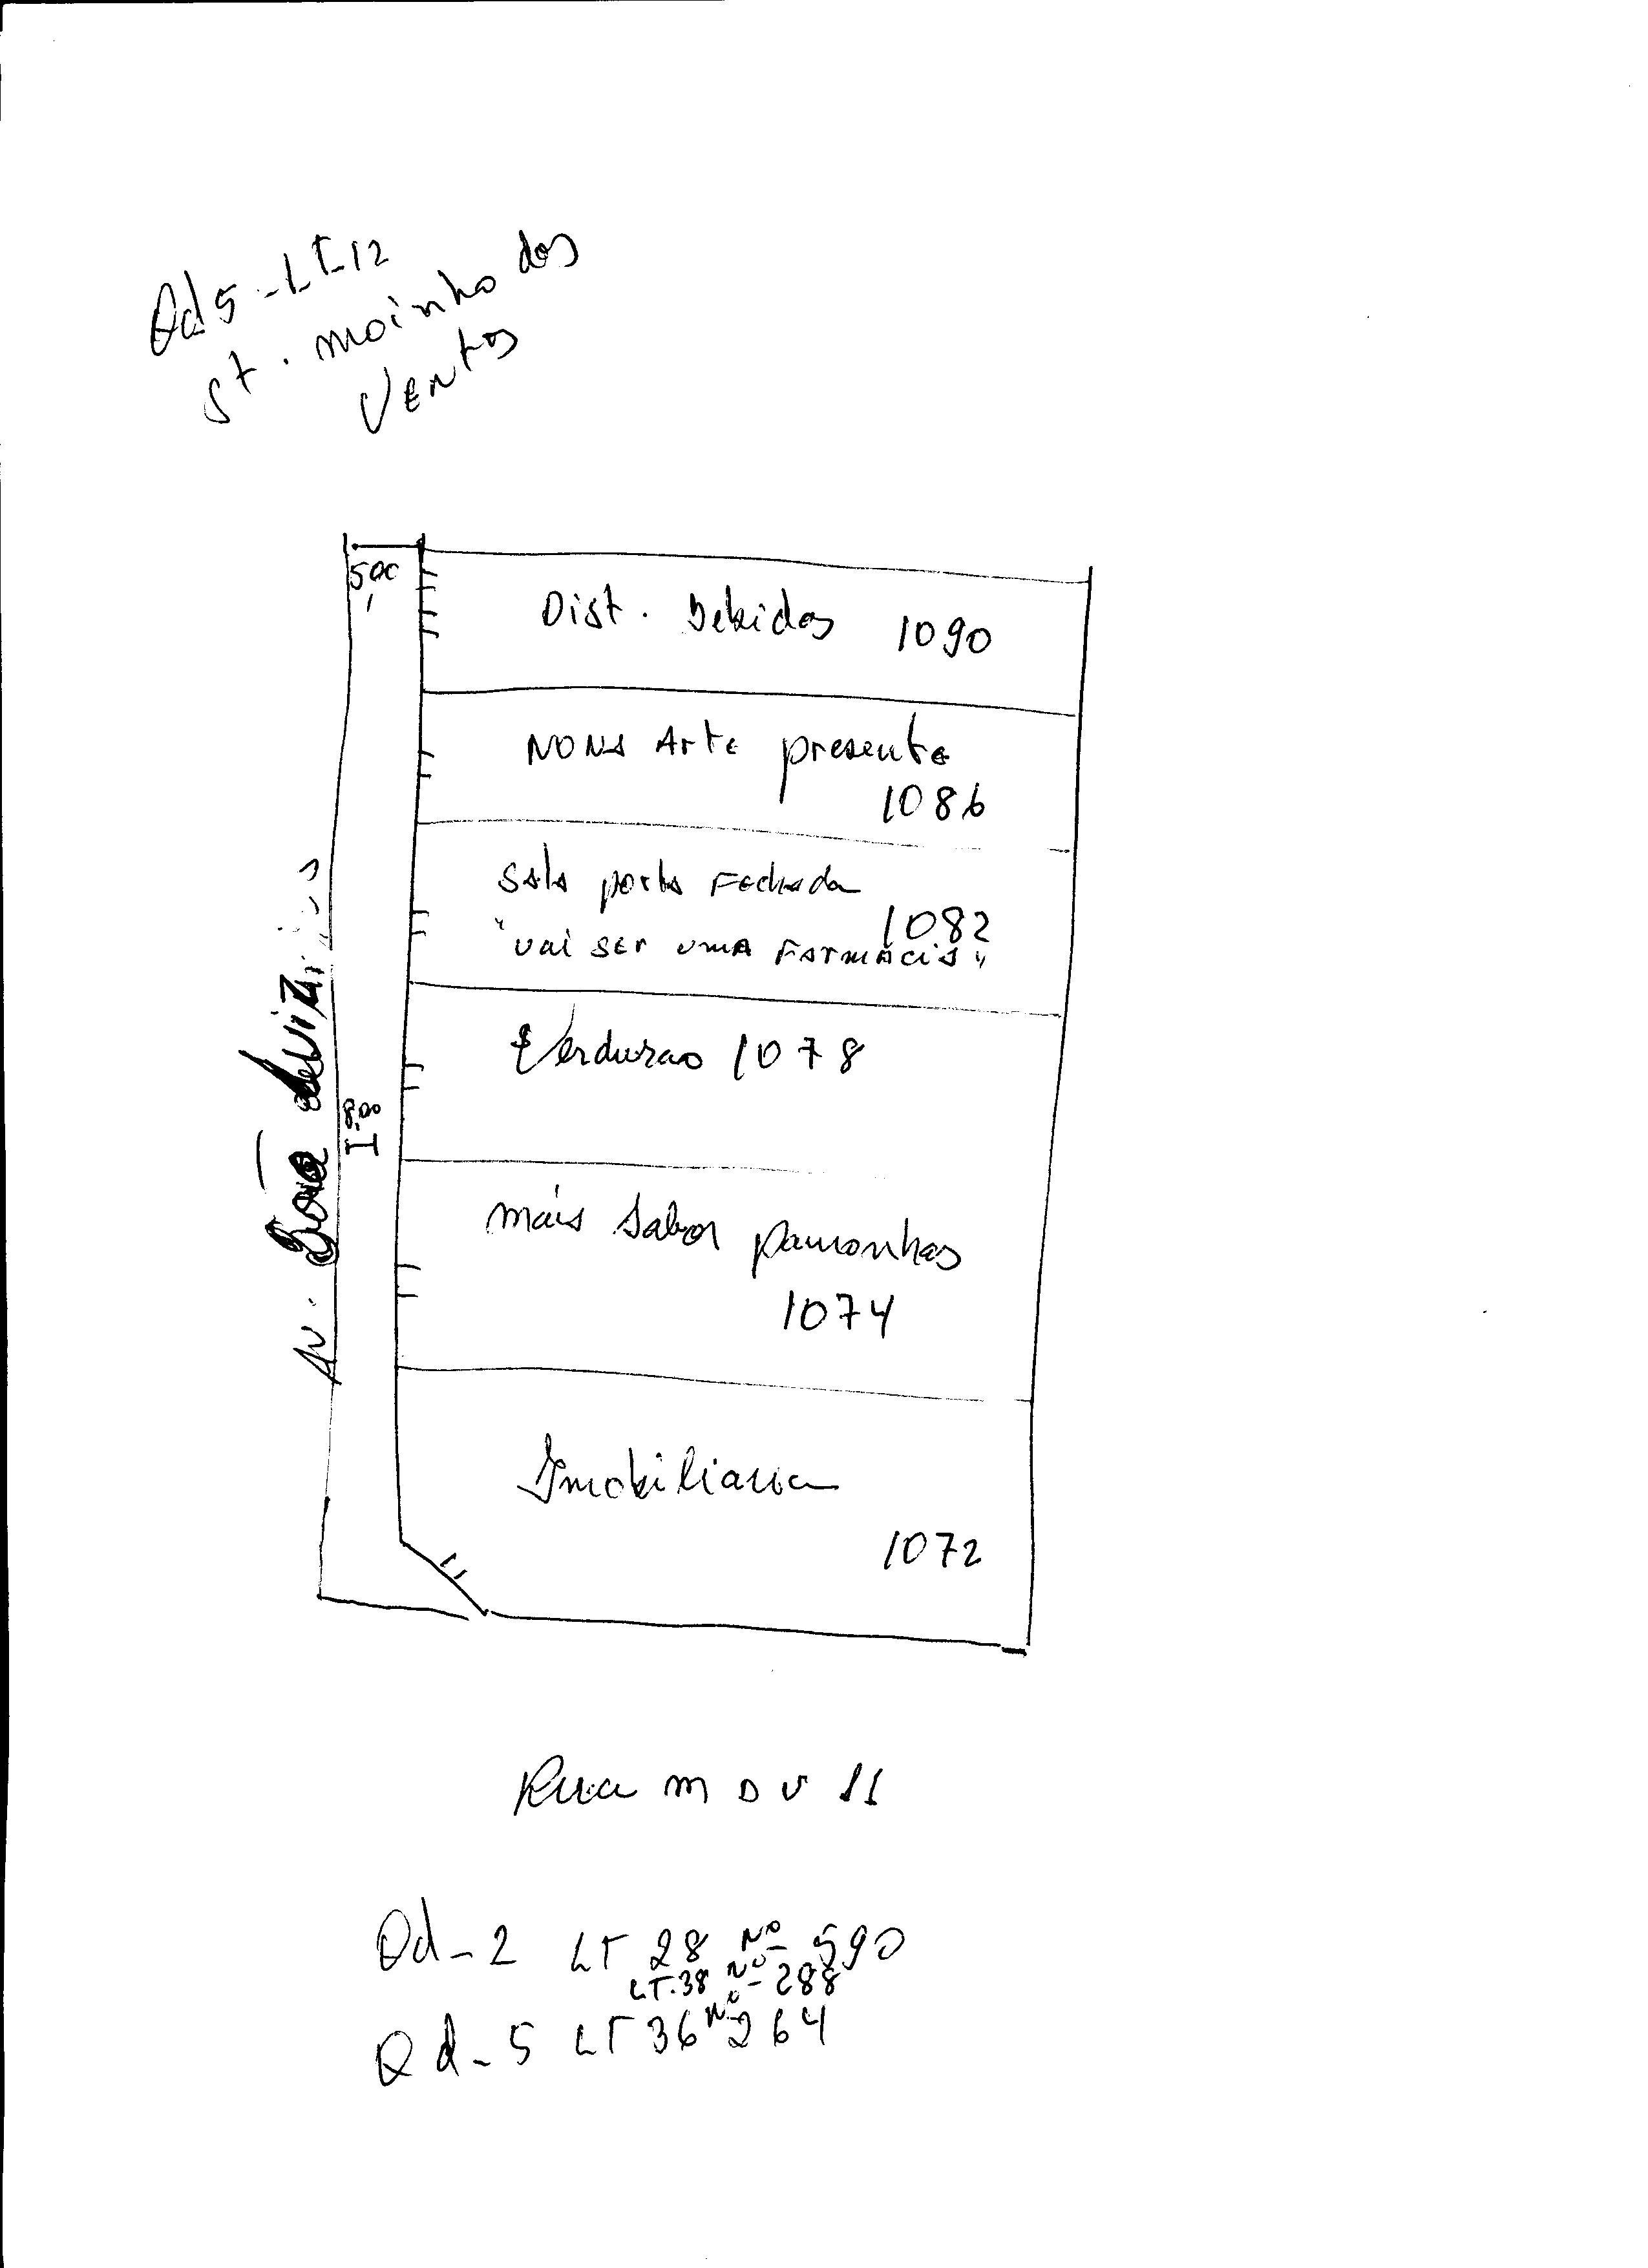 Qd 5 - LT-12
St. moinho dos
Ventos
5,00
Dist. Bebidas 1090
NONA Arte presente
1086
Sala porta Fechada
1082
"vai ser uma Farmácia"
Verdurao 1078
8,00
mais Sabor pamonhas
1074
Imobiliaria
1072
Av.
Rua m D V 11
Qd - 2 LT 28 Nº - 590
LT. 38 Nº - 288
Qd - 5 LT 36 Nº 264